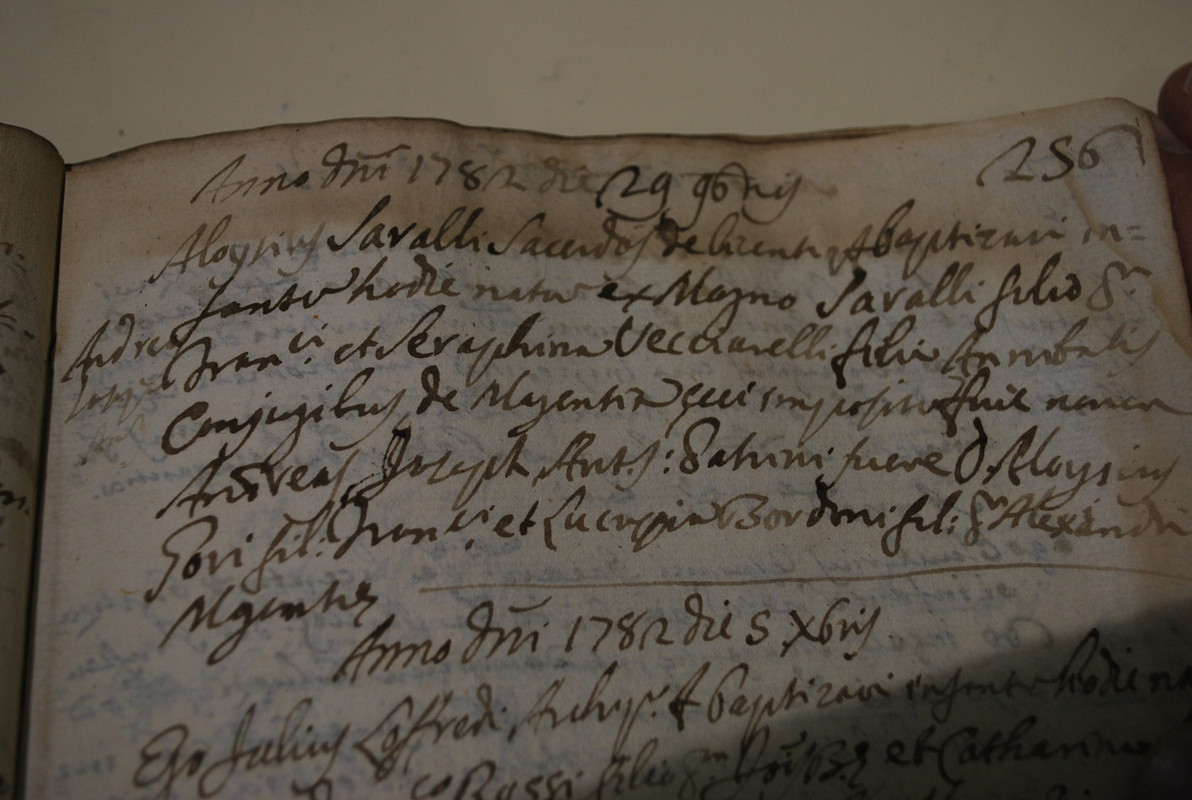 256
Anno Dñi 1782 die 29 9bris
Aloysius Savalli Sacerdos de licentia baptizavi in=
fante hodie natu ex Magno Savalli filio qm
Andreas
Joseph
Ant.
Franci et Seraphina Vecciarelli filia Annibalis
Conjugibus de Magentia cui impositu fuit nomen
Andreas Joseph Ant.s: Patrini fuere D. Aloysius
Gori fil: Franci et Lucrezia Bordoni fil: qm Alexandri
Mgentie
Anno Dñi 1782 die 5 Xbris
Ego Julius Loffredi, Archip. baptizavi infante hodie na
Rossi filio qm et Catharina